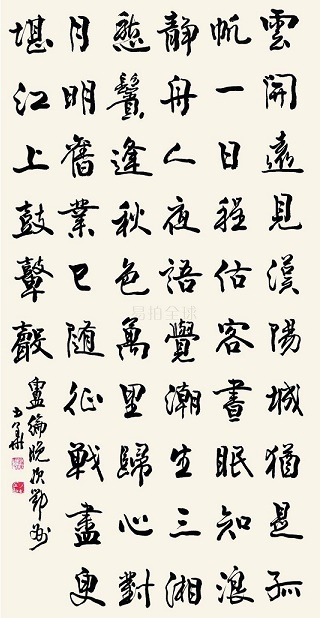 雲開遠見漢陽城猶是孤
帆一日程估客晝眠知浪
靜舟人夜語覺潮生三湘
愁鬢逢秋色萬里歸心對
月明舊業已隨征戰盡更
堪江上鼓鼙聲
盧綸晚次鄂州
易拍全球